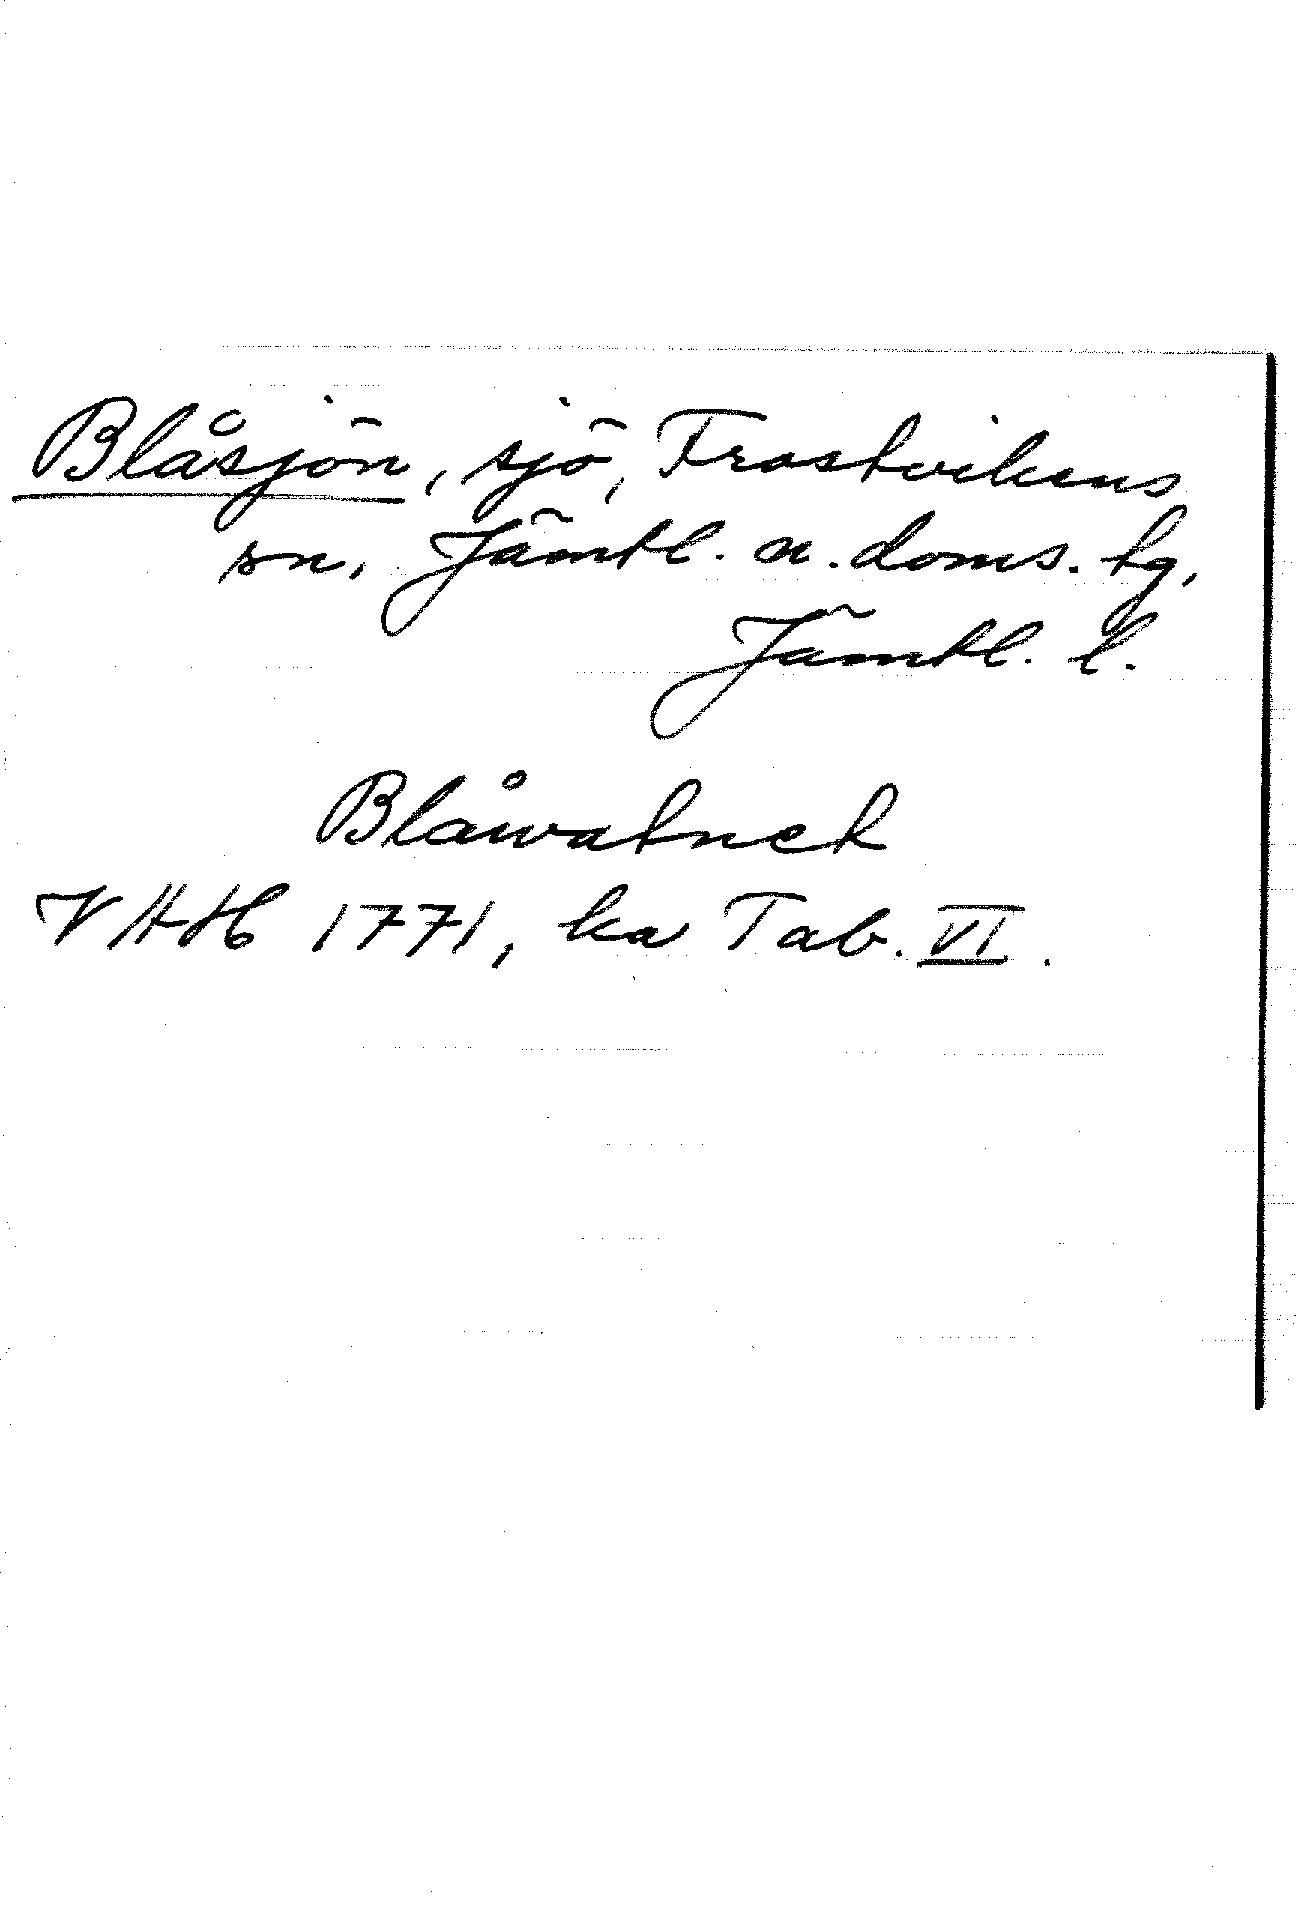 Blåsjön, sjö, Frostvikens
sn, Jämtl. n. doms. tg,
Jämtl. l.
Blåwatnet
VHH 1771, ka Tab. VI.